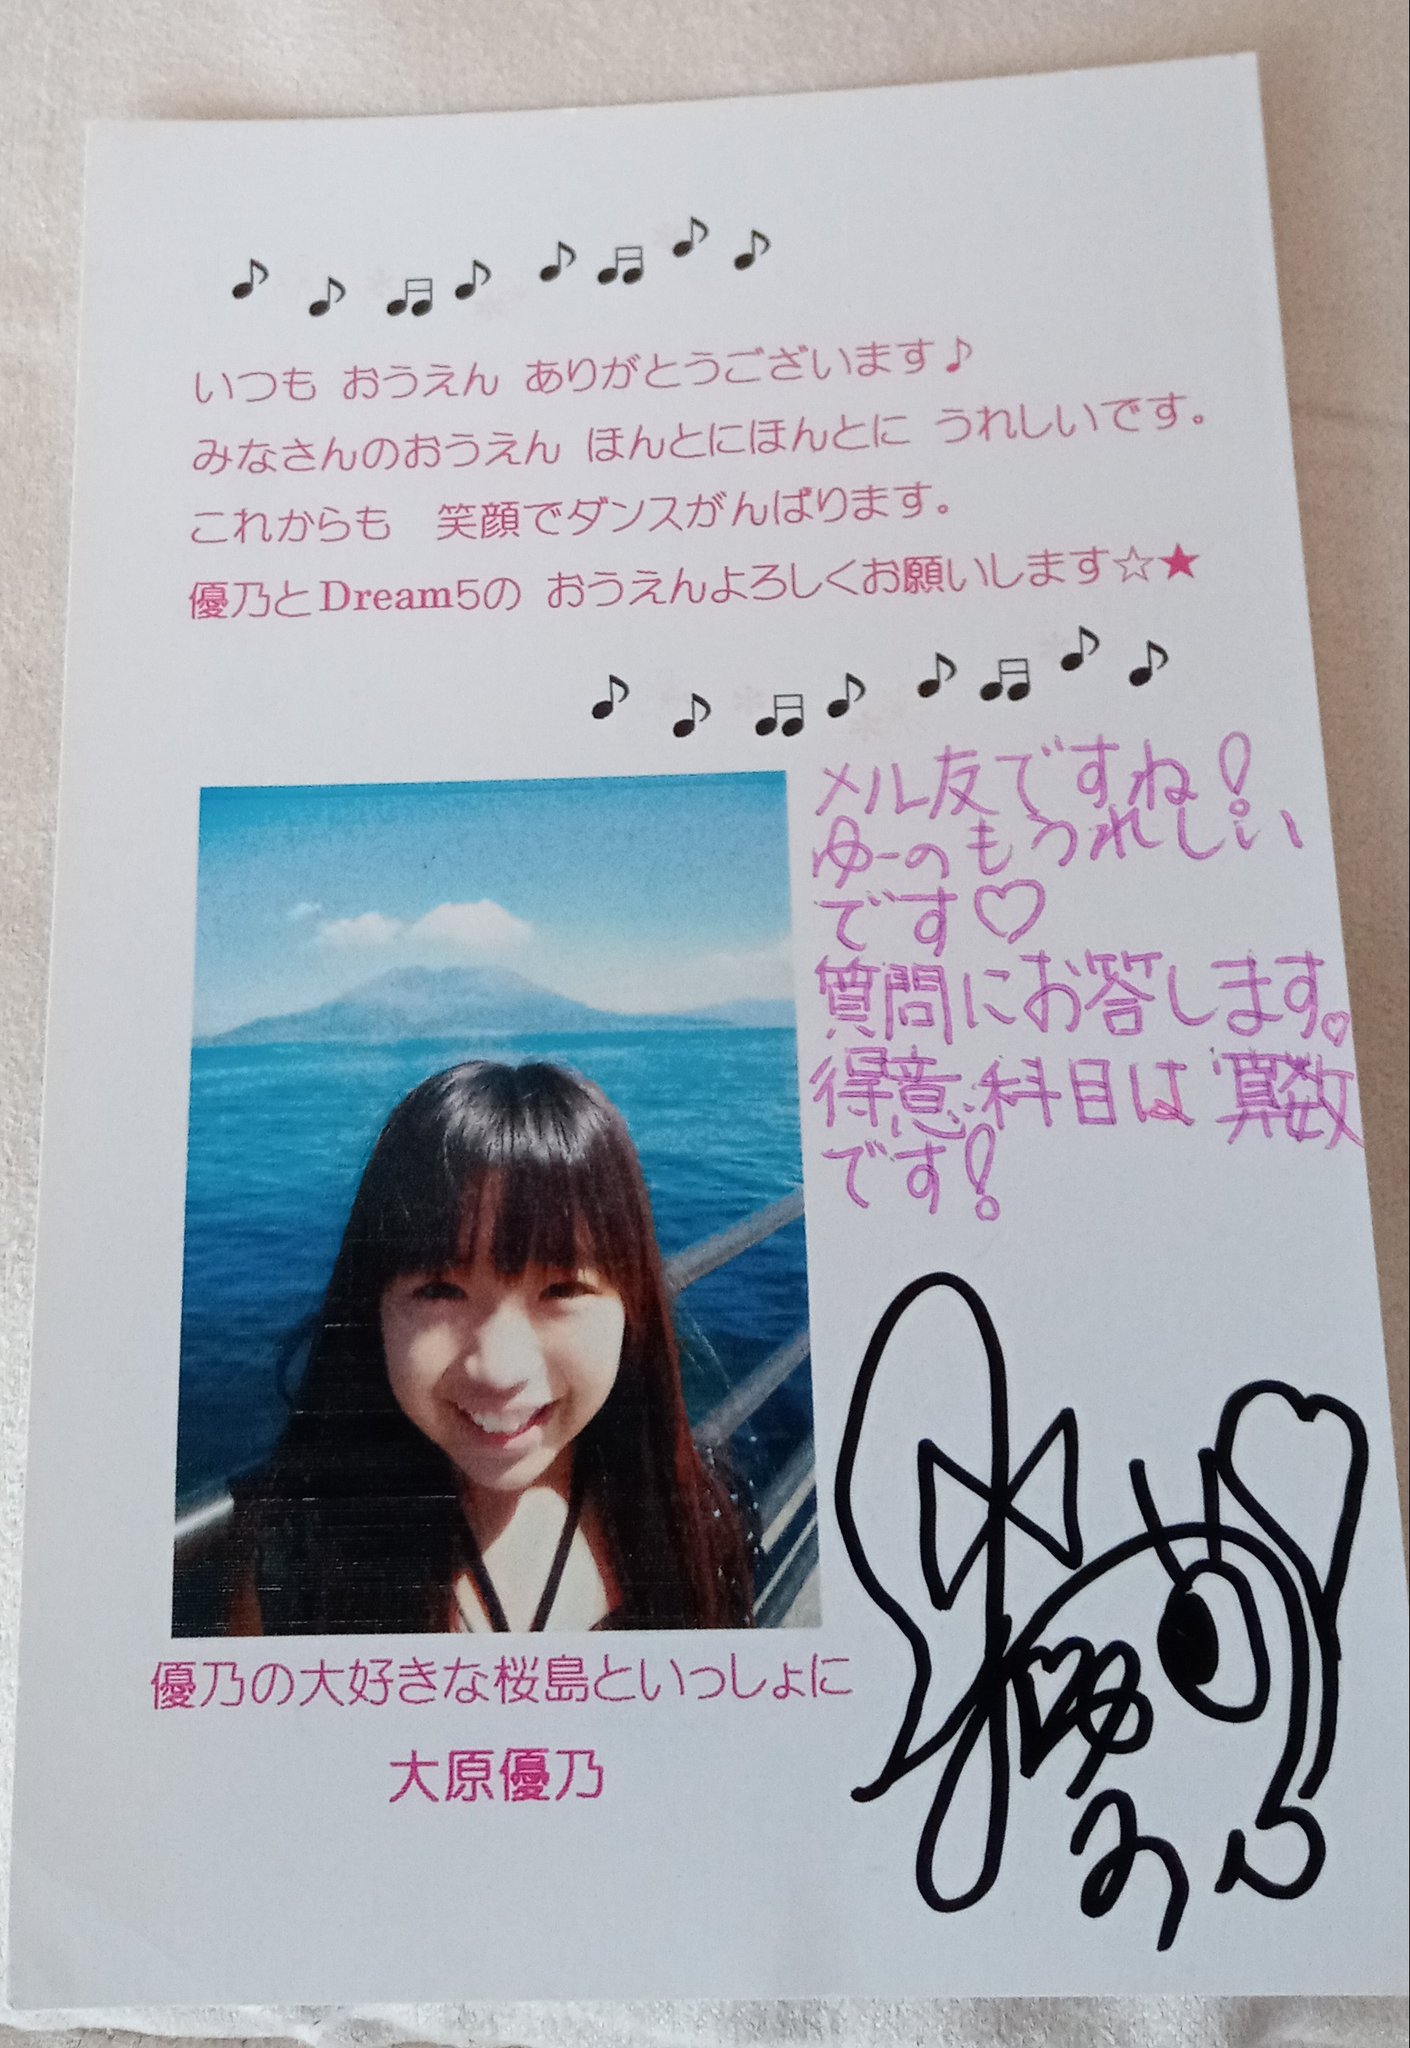 いつも おうえん ありがとうございます♪
みなさんのおうえん ほんとにほんとに うれしいです。
これからも　笑顔でダンスがんばります。
優乃とDream5の おうえんよろしくお願いします☆★
メル友ですね!
ゆーのもうれしい
です♡
質問にお答します。
得意科目は算数
です!
優乃の大好きな桜島といっしょに
大原優乃